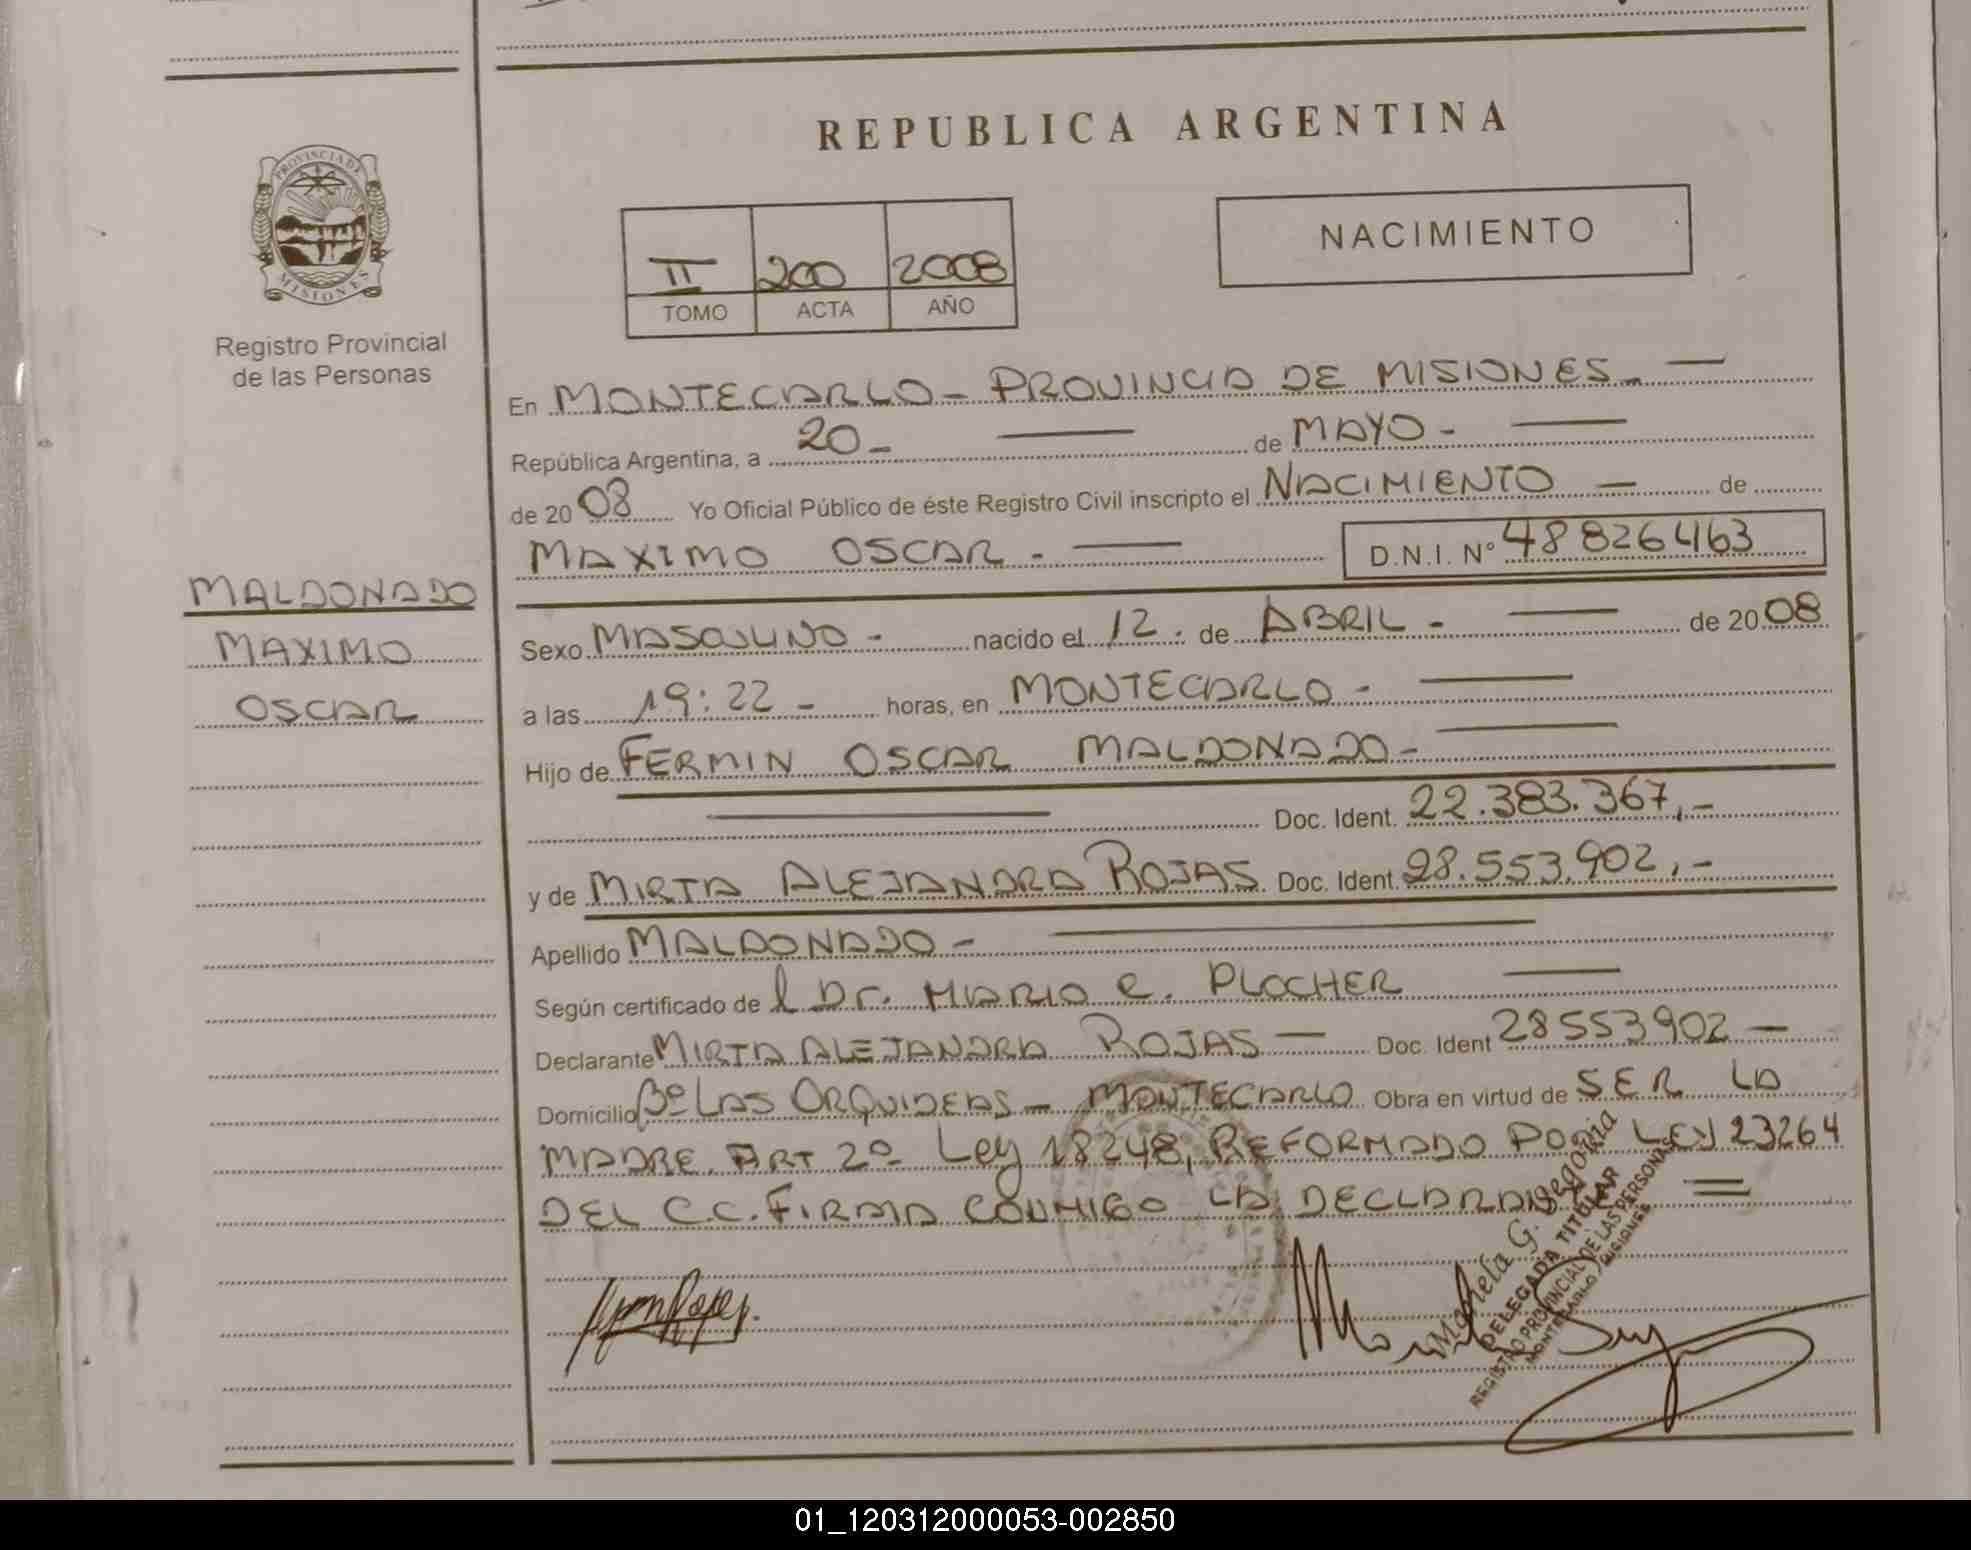 REPUBLICA ARGENTINA
PROVINCIA DE
MISIONES
Registro Provincial
de las Personas
NACIMIENTO
II 200 2008
TOMO ACTA AÑO
En MONTECARLO - PROVINCIA DE MISIONES. —
República Argentina, a 20 - — de MAYO - —
de 2008 Yo Oficial Público de éste Registro Civil inscripto el NACIMIENTO — de
MAXIMO OSCAR - — D.N.I. Nº 48826463
MALDONADO
MAXIMO
OSCAR
Sexo MASCULINO - nacido el 12 . de ABRIL - — de 2008
a las 19:22 - horas, en MONTECARLO - —
Hijo de FERMIN OSCAR MALDONADO - —
— Doc. Ident. 22.383.367,-
y de MIRTA ALEJANDRA ROJAS Doc. Ident. 28.553.902,-
Apellido MALDONADO - —
Según certificado de l Dr. MARIO E. PLOCHER —
Declarante MIRTA ALEJANDRA ROJAS — Doc. Ident 28553902 —
Domicilio Bº LAS ORQUIDEAS - MONTECARLO Obra en virtud de SER LA
MADRE. ART 2º Ley 18248, REFORMADO POR LEY 23264
DEL C.C. FIRMA CONMIGO LA DECLARANTE =
Mariela G. Segovia
DELEGADA TITULAR
REGISTRO PROVINCIAL DE LAS PERSONAS
MONTECARLO - MISIONES
01_120312000053-002850